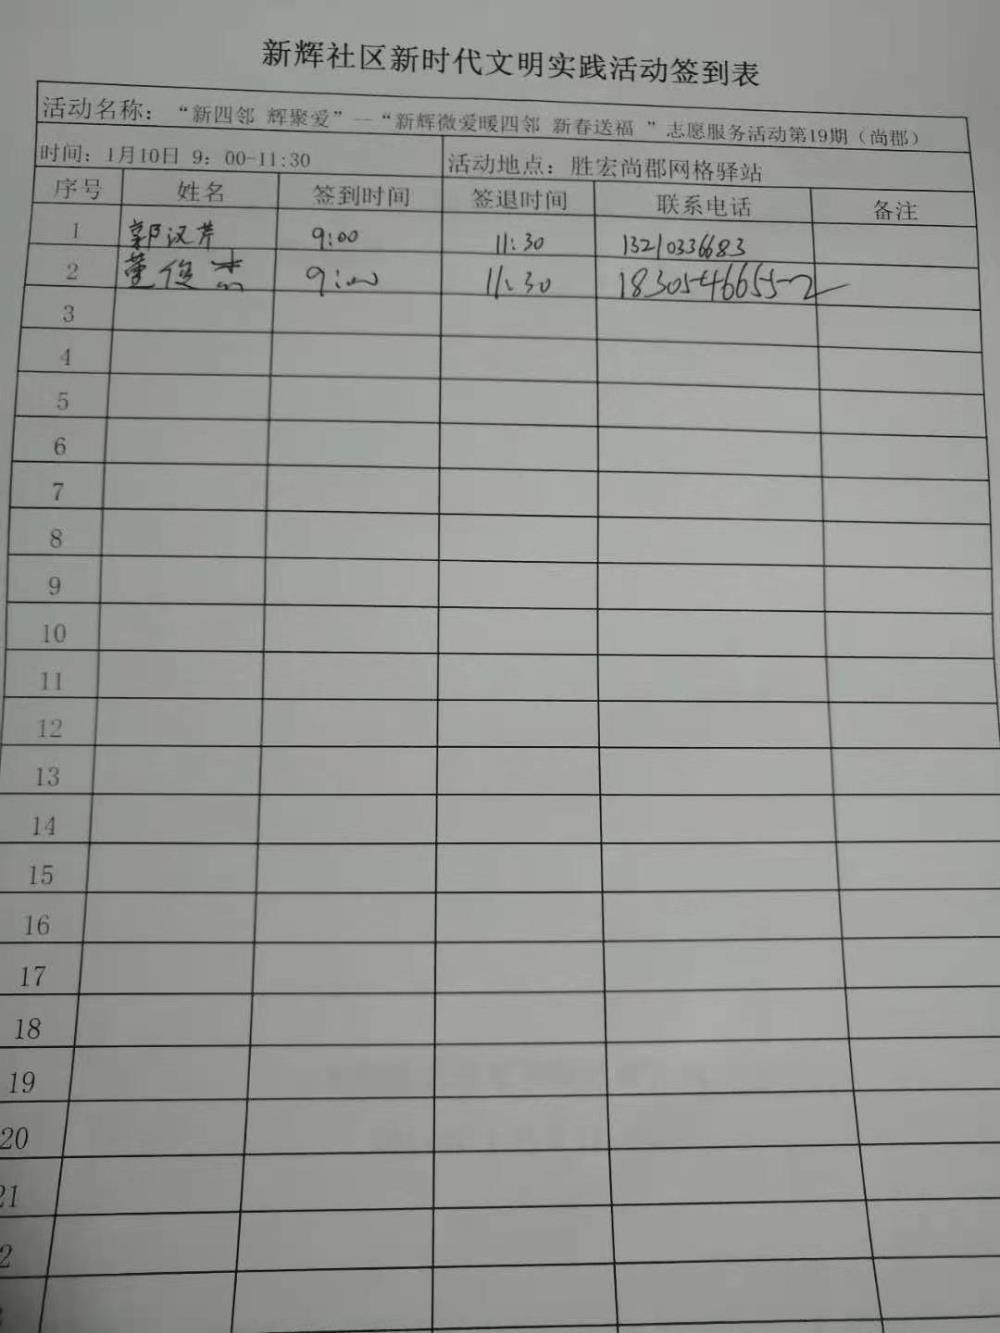 新辉社区新时代文明实践活动签到表
活动名称：“新四邻 辉聚爱”—“新辉微爱暖四邻 新春送福 ”志愿服务活动第19期（尚郡）
时间：1月10日 9：00-11:30 活动地点：胜宏尚郡网格驿站
序号 姓名 签到时间 签退时间 联系电话 备注
1 郭汉芹 9:00 11:30 13210336683
2 董俊杰 9:00 11:30 18305466552
3
4
5
6
7
8
9
10
11
12
13
14
15
16
17
18
19
20
21
2